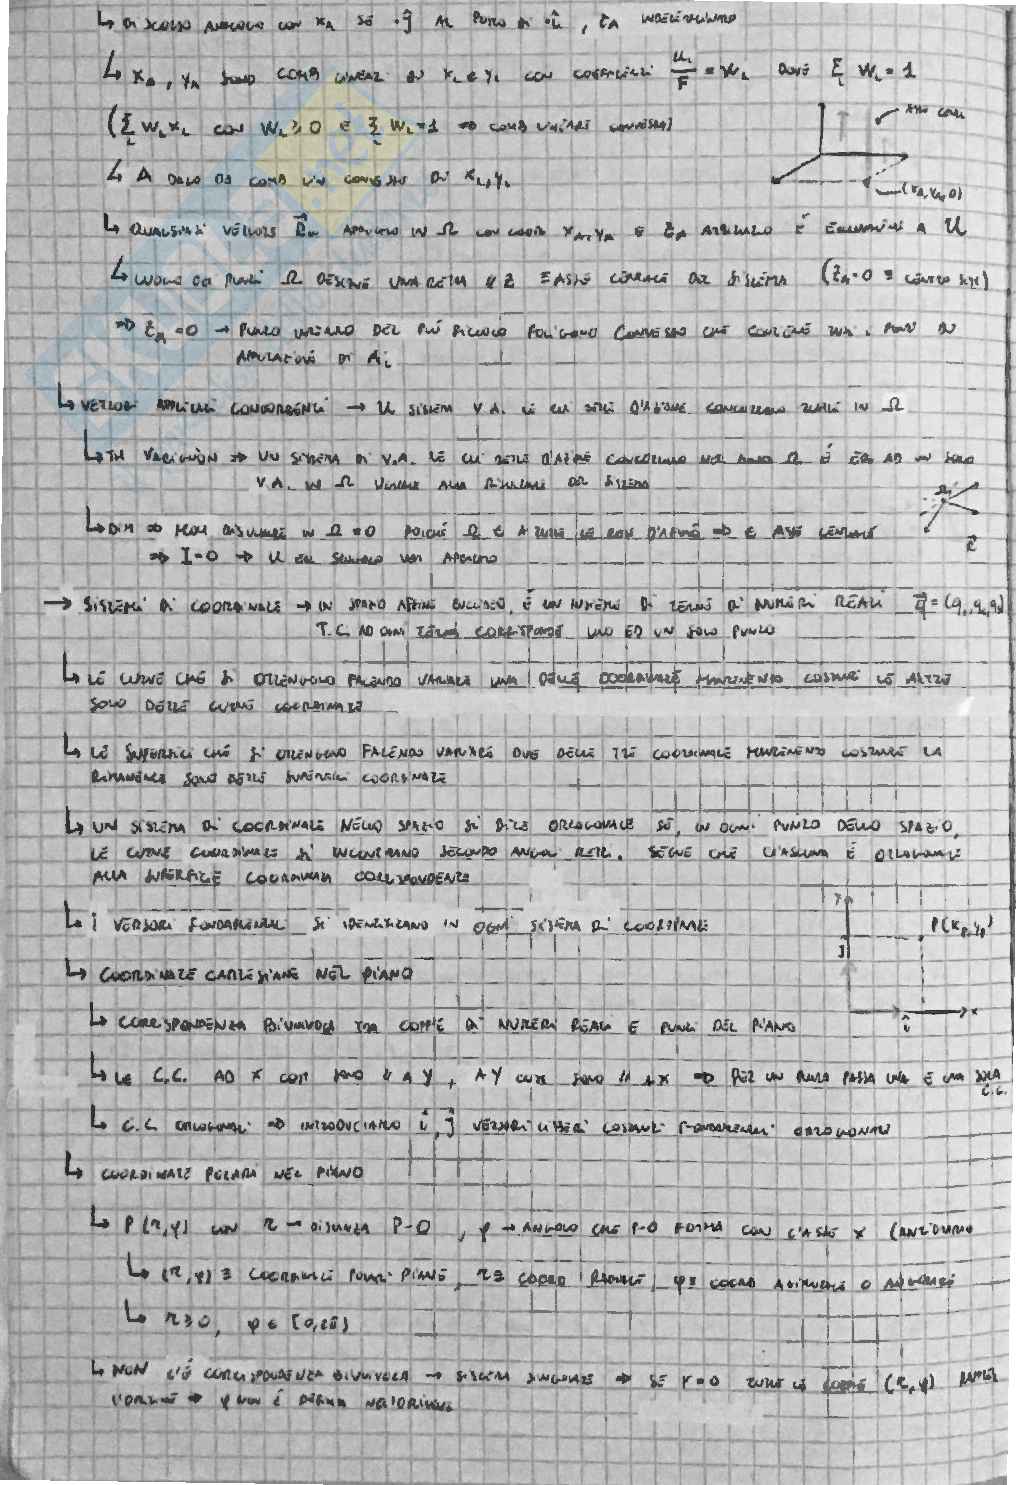 ↳ DISCORSO ANALOGO CON x_A SE ·ĵ AL POSTO DI ·î, z_A INDETERMINATO
↳ x_A, y_A SONO COMB LINEARI DI x_i E y_i CON COEFFICIENTI u_i/F = w_i DOVE Σ_i w_i = 1
(Σ_i w_i x_i CON w_i ≥ 0 E Σ_i w_i = 1 ⇒ COMB LINEARE CONVESSA)
ASSE CENTR
↳ A DATO DA COMB LIN CONVESSA DI x_i, y_i
(x_A, y_A, 0)
↳ QUALSIASI VETTORE APPLICATO IN Ω CON COORD x_A, y_A E z_A ARBITRARIO È EQUIVALENTE A U
↳ LUOGO DEI PUNTI Ω DESCRIVE UNA RETTA // Z ≡ ASSE CENTRALE DEL SISTEMA (z_A = 0 ≡ CENTRO SIST)
⇒ z_A = 0 → PUNTO INTERNO DEL PIÙ PICCOLO POLIGONO CONVESSO CHE CONTIENE TUTTI I PUNTI DI
APPLICAZIONE DI A_i
↳ VETTORI APPLICATI CONCORRENTI → U SISTEMA V.A. LE CUI RETTE D'AZIONE CONCORRONO TUTTE IN Ω
↳ TH VARIGNON ⇒ UN SISTEMA DI V.A. LE CUI RETTE D'AZIONE CONCORRONO NEL PUNTO Ω È EQ AD UN SOLO
V.A. IN Ω UGUALE ALLA RISULTANTE DEL SISTEMA
Ω
R
↳ DIM ⇒ MOM RISULTANTE IN Ω = 0 POICHÉ Ω ∈ A TUTTE LE RETTE D'AZIONE ⇒ ∈ ASSE CENTRALE
⇒ I = 0 → U EQ SINGOLO VET APPLICATO
→ SISTEMI DI COORDINATE → IN SPAZIO AFFINE EUCLIDEO, È UN INSIEME DI TERNE DI NUMERI REALI q = (q₁, q₂, q₃)
T.C. AD OGNI TERNA CORRISPONDE UNO ED UN SOLO PUNTO
↳ LE CURVE CHE SI OTTENGONO FACENDO VARIARE UNA DELLE COORDINATE MANTENENDO COSTANTI LE ALTRE
SONO DETTE CURVE COORDINATE
↳ LE SUPERFICI CHE SI OTTENGONO FACENDO VARIARE DUE DELLE TRE COORDINATE MANTENENDO COSTANTE LA
RIMANENTE SONO DETTE SUPERFICI COORDINATE
↳ UN SISTEMA DI COORDINATE NELLO SPAZIO SI DICE ORTOGONALE SE, IN OGNI PUNTO DELLO SPAZIO,
LE CURVE COORDINATE SI INCONTRANO SECONDO ANGOLI RETTI. SEGUE CHE CIASCUNA È ORTOGONALE
ALLA SUPERFICIE COORDINATA CORRISPONDENTE
↳ I VERSORI FONDAMENTALI SI IDENTIFICANO IN OGNI SISTEMA DI COORDINATE
y
P(x_p, y_p)
ĵ
↳ COORDINATE CARTESIANE NEL PIANO
↳ CORRISPONDENZA BIUNIVOCA TRA COPPIE DI NUMERI REALI E PUNTI DEL PIANO
î
x
↳ LE C.C. AD X COST SONO // A Y, A Y COST SONO // A X ⇒ PER UN PUNTO PASSA UNA E UNA SOLA
C.C.
↳ C.C. ORTOGONALI ⇒ INTRODUCIAMO î, ĵ VERSORI LIBERI COSTANTI FONDAMENTALI ORTOGONALI
↳ COORDINATE POLARI NEL PIANO
↳ P(r, φ) CON r → DISTANZA P-O, φ → ANGOLO CHE P-O FORMA CON L'ASSE X (ANTIORARIO
↳ (r, φ) ≡ COORDINATE POLARI PIANE, r ≡ COORD RADIALE, φ ≡ COORD AZIMUTALE O ANGOLARE
↳ r ≥ 0, φ ∈ [0, 2π)
↳ NON C'È CORRISPONDENZA BIUNIVOCA → SISTEMA SINGOLARE ⇒ SE r = 0 TUTTE LE COPPIE (r, φ) RAPPRES
L'ORIGINE ⇒ φ NON È DEFINITA NELL'ORIGINE